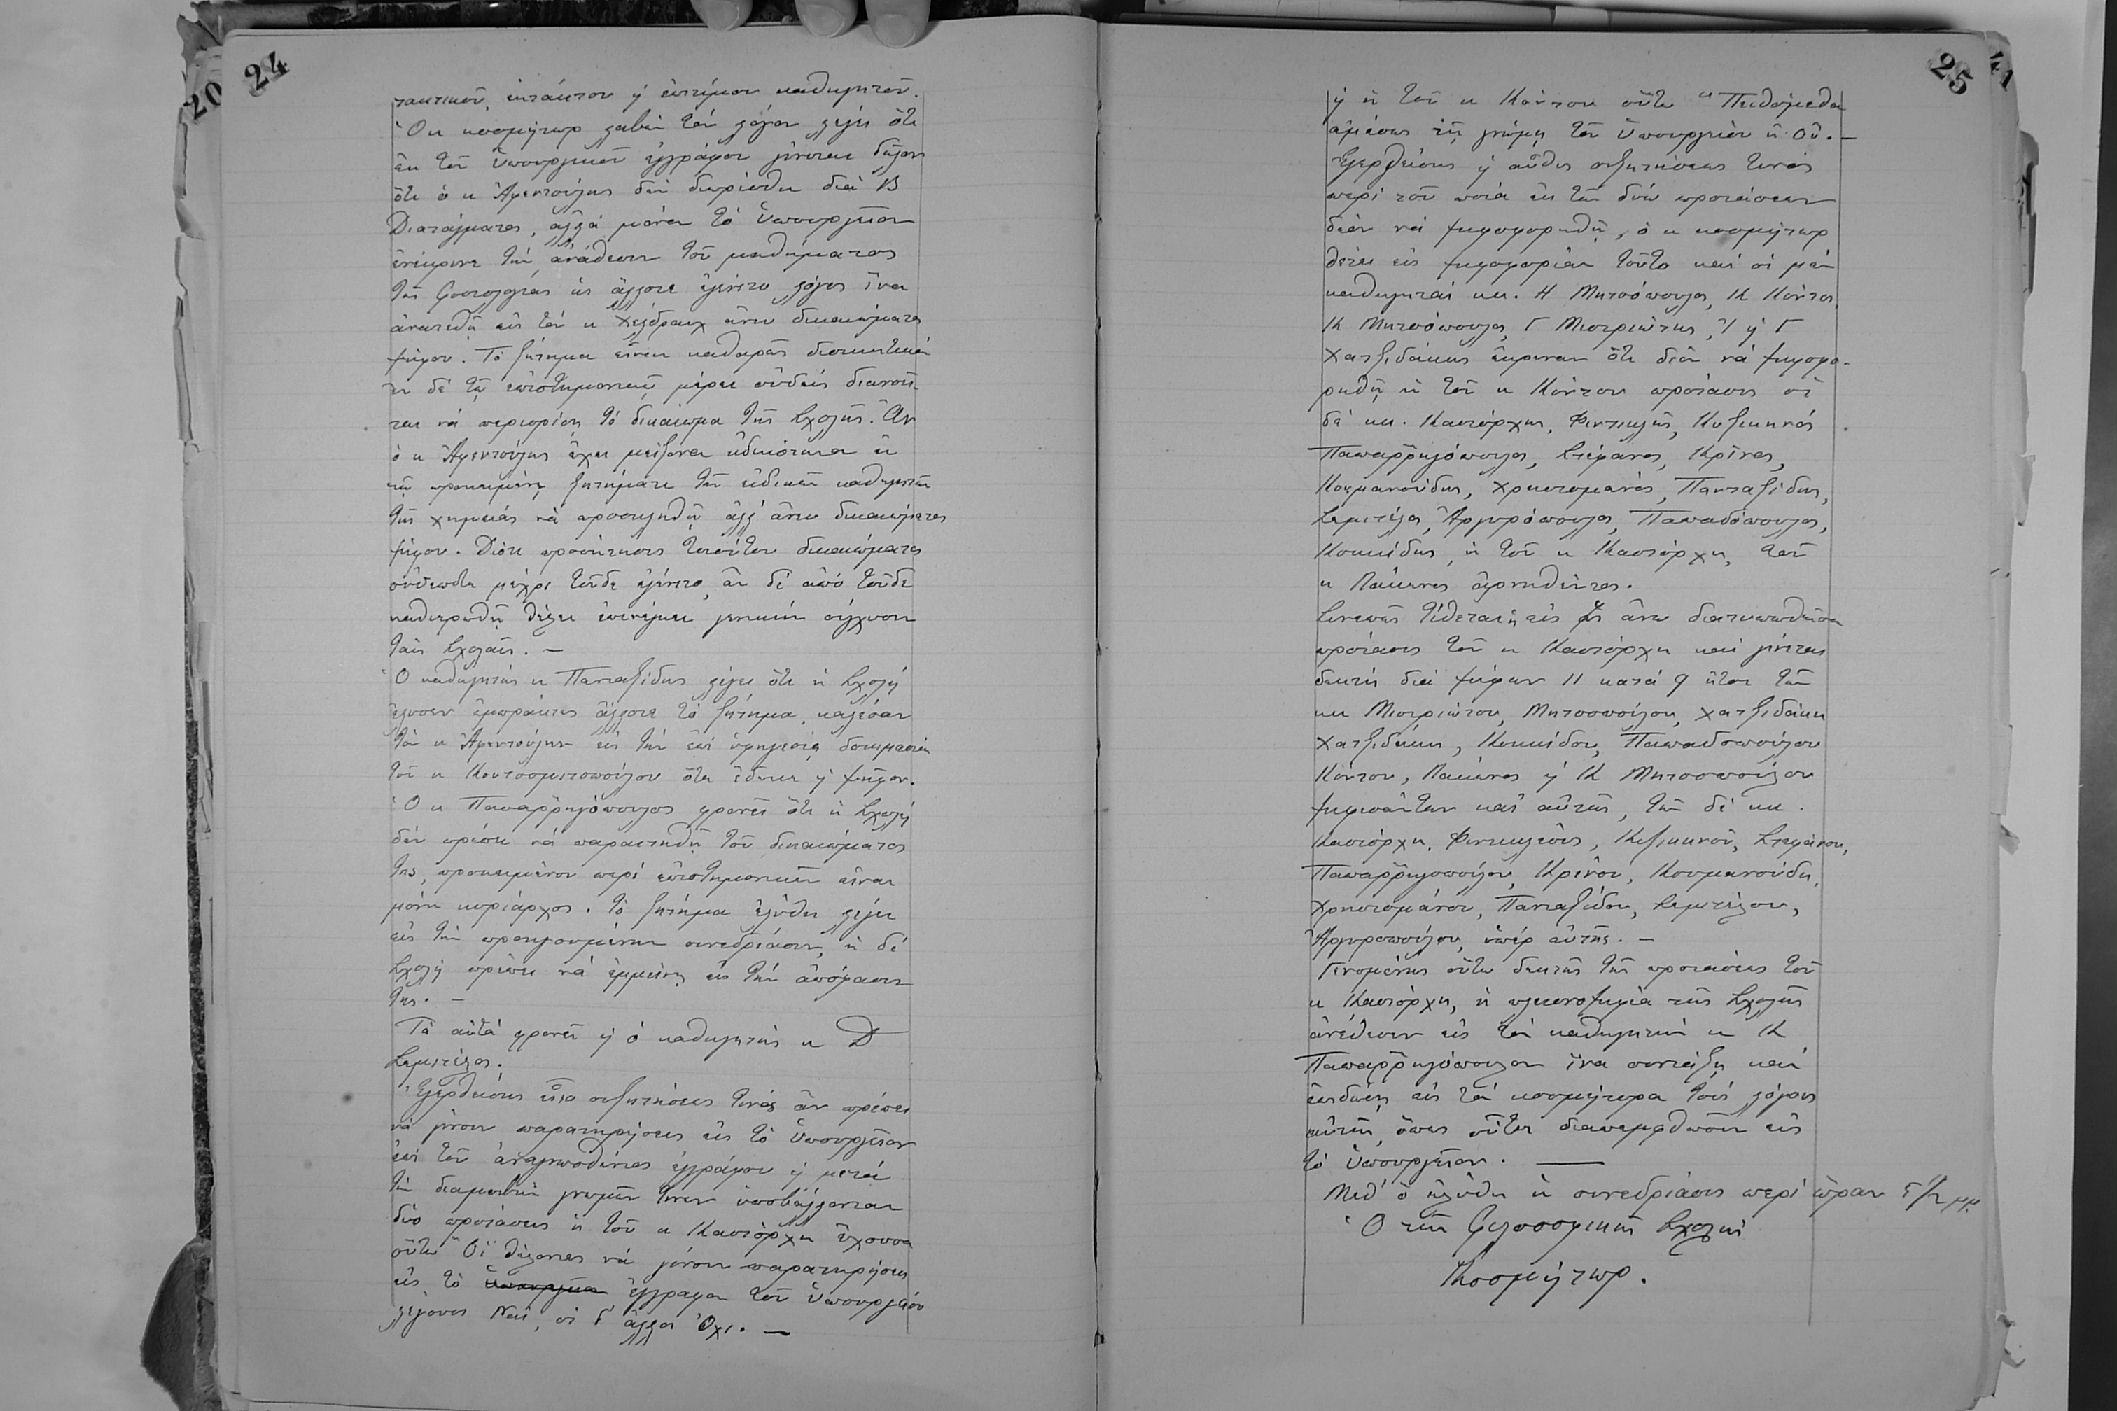 20 24
τακτικοῦ, ἐκτάκτου ἢ ἐπιτίμου καθηγητοῦ.
Ὁ κ κοσμήτωρ λαβὼν τὸν λόγον λέγει ὅτι
ἐκ τοῦ Ὑπουργικοῦ ἐγγράφου γίνεται δῆλον
ὅτι ὁ κ Ἀφεντούλης δὲν διωρίσθη διὰ Β
Διατάγματος, ἀλλὰ μόνον τὸ Ὑπουργεῖον
ἐνέκρινε τὴν ἀνάθεσιν τοῦ μαθήματος
τῆς ζῳολογίας ὡς ἄλλοτε ἐγένετο λόγος ἵνα
ἀνατεθῇ εἰς τὸν κ Χέλδραϊχ ἄνευ δικαιώματος
ψήφου. Τὸ ζήτημα εἶναι καθαρῶς διοικητικὸν
ἐν δὲ τῷ ἐπιστημονικῷ μέρει οὐδεὶς διανοεῖ-
ται νὰ περιορίσῃ τὸ δικαίωμα τῆς Σχολῆς. Ἂν
ὁ κ Ἀφεντούλης ἔχει μείζονα εἰδικότητα ἐν
τῷ προκειμένῳ ζητήματι τῶν εἰδικῶν καθηγητῶν
τῆς χημείας νὰ προσκληθῇ ἀλλ' ἄνευ δικαιώματος
ψήφου. Διότι προσκτησις τοιούτου δικαιώματος
οὐδέποτε μέχρι τοῦδε ἐγένετο, ἂν δὲ ἀπὸ τοῦδε
καθιερωθῇ θέλει ἐπενέγκει γενικὴν σύγχυσιν
ταῖς Σχολαῖς. —
Ὁ καθηγητὴς κ Πανταζίδης λέγει ὅτι ἡ Σχολὴ
ἔλυσεν ἐμπράκτως ἄλλοτε τὸ ζήτημα, καλέσασα
τὸν κ Ἀφεντούλην εἰς τὴν ἐπὶ ὑφηγεσίᾳ δοκιμασίαν
τοῦ κ Κουτσομητοπούλου ὅτε ἔδωκε ἢ ψῆφον.
Ὁ κ Παπαρρηγόπουλος φρονεῖ ὅτι ἡ Σχολὴ
δὲν πρέπει νὰ παραιτηθῇ τοῦ δικαιώματός
της, προκειμένου περὶ ἐπιστημονικῶν εἶναι
μόνη κυρίαρχος. Τὸ ζήτημα ἐλύθη λέγει
εἰς τὴν προηγουμένην συνεδρίασιν, ἡ δὲ
Σχολὴ πρέπει νὰ ἐμμείνῃ εἰς τὴν ἀπόφασιν
της. —
Τὰ αὐτὰ φρονεῖ ἢ ὁ καθηγητὴς κ Δ
Σεμιτέλος.
Ἐγερθείσης εἶτα συζητήσεως τινὸς ἂν πρέπει
νὰ γίνουν παρατηρήσεις εἰς τὸ Ὑπουργεῖον
ἐπὶ τοῦ ἀναγνωσθέντος ἐγγράφου ἢ μετὰ
τὴν διαμοιβὴν γνωμῶν τινων ὑποβάλλονται
δύο προτάσεις ἡ τοῦ κ Καστόρχη ἔχουσα
οὕτω "Οἱ θέλοντες νὰ γίνουν παρατηρήσεις
εἰς τὸ Ὑπουργεῖον ἔγγραφον τοῦ Ὑπουργείου
λέγουσι Ναί, οἱ δ' ἄλλοι Ὄχι. —
25 41
ἢ ἡ τοῦ κ Κόντου οὕτω "Πειθόμεθα
ἀμέσως τῇ γνώμῃ τοῦ Ὑπουργείου ἢ Οὔ. —
Ἐγερθείσης ἢ αὖθις συζητήσεως τινὸς
περὶ τοῦ ποία ἐκ τῶν δύο προτάσεων
δέον νὰ ψηφοφορηθῇ, ὁ κ κοσμήτωρ
θέτει εἰς ψηφοφορίαν τοῦτο καὶ οἱ μὲν
καθηγηταὶ κκ. Η Μητσόπουλος, Κ Κόντος
Κ Μητσόπουλος, Γ Μιστριώτης, Ἰ ἢ Γ
Χατζιδάκης ἔκριναν ὅτι δέον νὰ ψηφοφο-
ρηθῇ ἡ τοῦ κ Κόντου πρότασις οἱ
δὲ κκ. Καστόρχης, Φιντικλῆς, Κυζικηνὸς
Παπαρρηγόπουλος, Στέφανος, Κρίνος,
Κουμανούδης, Χρηστομάνος, Πανταζίδης,
Σεμιτέλος, Ἀργυρόπουλος, Παπαδόπουλος,
Κοκκίδης, ἡ τοῦ κ Καστόρχη, τοῦ
κ Λάκωνος ἀρνηθέντος.
Συνεπῶς τίθεται ἡ εἰς ἄνω διατυπωθεῖσα
πρότασις τοῦ κ Καστόρχη καὶ γίνεται
δεκτὴ διὰ ψήφων 11 κατὰ 9 ἤτοι τῶν
κκ Μιστριώτου, Μητσοπούλου, Χατζιδάκη
Χατζιδάκη, Κοκκίδου, Παπαδοπούλου
Κόντου, Λάκωνος ἢ Κ Μητσοπούλου
ψηφισάντων κατ' αὐτῆς, τῶν δὲ κκ.
Καστόρχη, Φιντικλέους, Κυζικηνοῦ, Στεφάνου,
Παπαρρηγοπούλου, Κρίνου, Κουμανούδη,
Χρηστομάνου, Πανταζίδου, Σεμιτέλου,
Ἀργυροπούλου, ὑπὲρ αὐτῆς. —
Γενομένης οὕτω δεκτῆς τῆς προτάσεως τοῦ
κ Καστόρχη, ἡ πλειονοψηφία τῆς Σχολῆς
ἀνέθεσεν εἰς τὸν καθηγητὴν κ Κ
Παπαρρηγόπουλον ἵνα συντάξῃ καὶ
ἐπιδώσῃ εἰς τὸν κοσμήτορα τοὺς λόγους
αὐτῆς, ὅπως οὗτοι διαπεμφθῶσιν εἰς
τὸ Ὑπουργεῖον. —
Μεθ' ὃ ἐλύθη ἡ συνεδρίασις περὶ ὥραν ε½ μμ.
Ὁ τῆς Φιλοσοφικῆς Σχολῆς
Κοσμήτωρ.